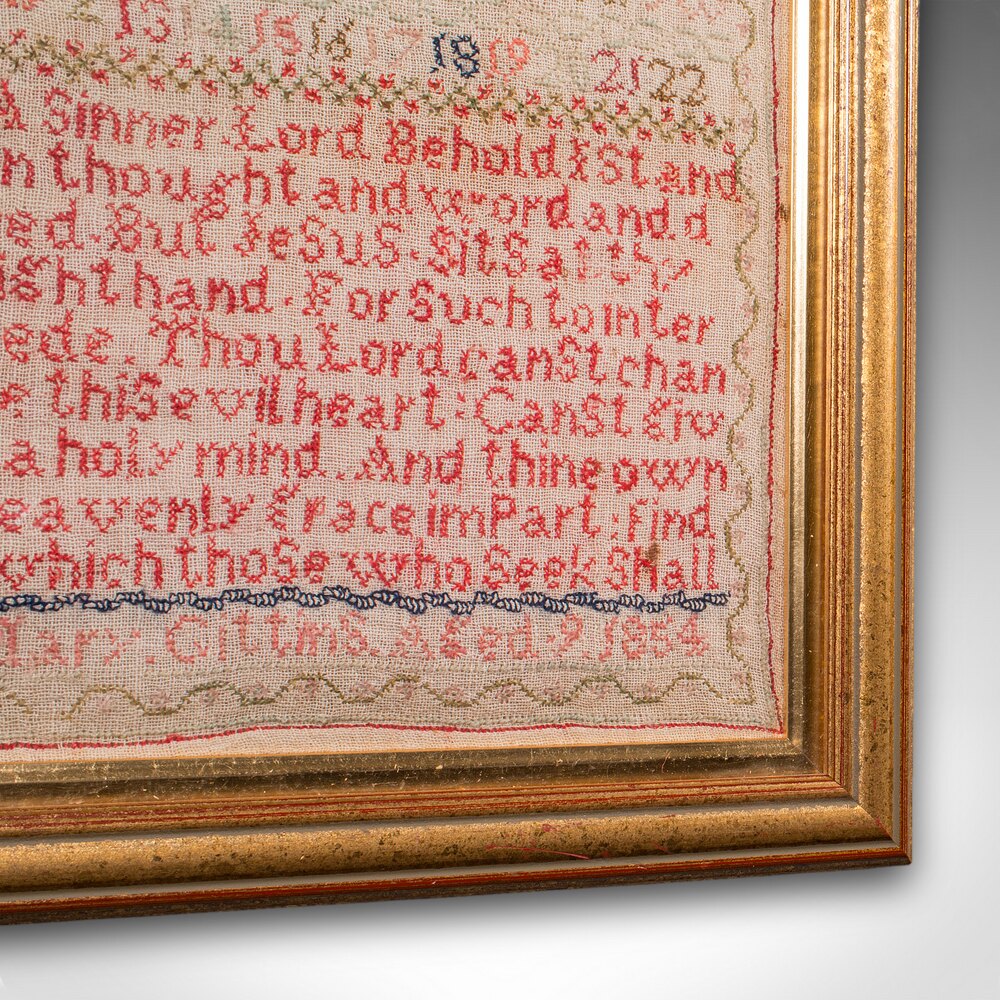 13 15 16 17 18 19 21 22
A Sinner Lord Behold I Stand
n thought and word and d
ed. But Jesus. Sits at thy
ight hand. For Such to inter
ede. Thou Lord canst chan
e this evil heart: Canst giv
a holy mind. And thine own
eavenly Grace imPart: find
which those who Seek Shall
Mary. Gittins. Aged. 9 1854